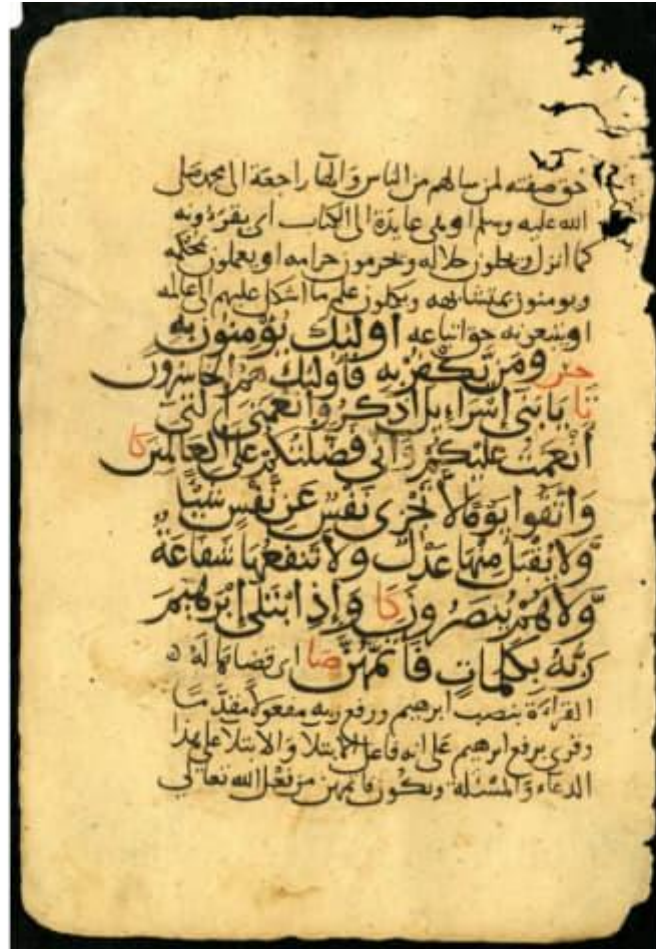 حق صفته لمن سالهم من الناس والهآ راجعة الى محمد صلى
الله عليه وسلم او هى عايدة الى الكتاب اى يقرءونه
كما انزل ويحلون حلاله ويحرمون حرامه او يعملون بمحكمه
ويومنون بمتشابهه ويكلون علم ما اشكل عليهم الى عالمه
او يتبعونه حق اتباعه اُولٰئِكَ يُؤْمِنُونَ بِهِ
وَمَن يَّكْفُرْ بِهِ فَأُولَٰئِكَ هُمُ الْخَاسِرُونَ
يَا بَنِي إِسْرَاءِيلَ اذْكُرُوا نِعْمَتِيَ الَّتِي
أَنْعَمْتُ عَلَيْكُمْ وَأَنِّي فَضَّلْتُكُمْ عَلَى الْعَالَمِينَ كا
وَاتَّقُوا يَوْمًا لَّا تَجْزِي نَفْسٌ عَن نَّفْسٍ شَيْئًا
وَّلَا يُقْبَلُ مِنْهَا عَدْلٌ وَلَا تَنفَعُهَا شَفَاعَةٌ
وَّلَا هُمْ يُنصَرُونَ كا وَإِذِ ابْتَلَىٰ إِبْرَٰهِيمَ
رَبُّهُ بِكَلِمَاتٍ فَأَتَمَّهُنَّ صا اى قضاهآ له
القراءة بنصب ابرهيم ورفع ربه مفعولا مقدما
وقرى برفع ابرهيم على انه فاعل الابتلا والابتلا على هذا
الدعاء والمسئلة ويكون فاتمهن من فعل الله تعالى